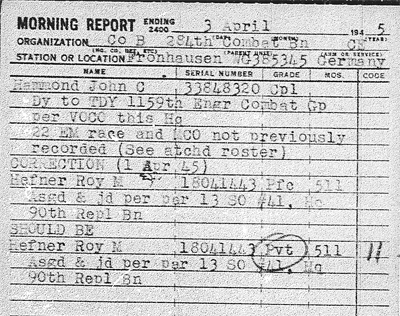 MORNING REPORT ENDING 2400 3 April 194 5
(DAY) (MONTH) (YEAR)
ORGANIZATION Co B 284th Combat Bn CE
(HQ. CO, DET, ETC) (PARENT UNIT) (ARM OR SERVICE)
STATION OR LOCATION Fronhausen /G385345 Germany
NAME SERIAL NUMBER GRADE MOS. CODE
Hammond John C 33848320 Cpl
Dy to TDY 1159th Engr Combat Gp
per VOCO this Hq
22 EM race and MCO not previously
recorded (See atchd roster)
CORRECTION (1 Apr 45)
Hefner Roy M 18041443 Pfc 511
Asgd & jd per par 13 SO #41, Hq
90th Repl Bn
SHOULD BE
Hefner Roy M 18041443 Pvt 511 11
Asgd & jd per par 13 SO #41, Hq
90th Repl Bn